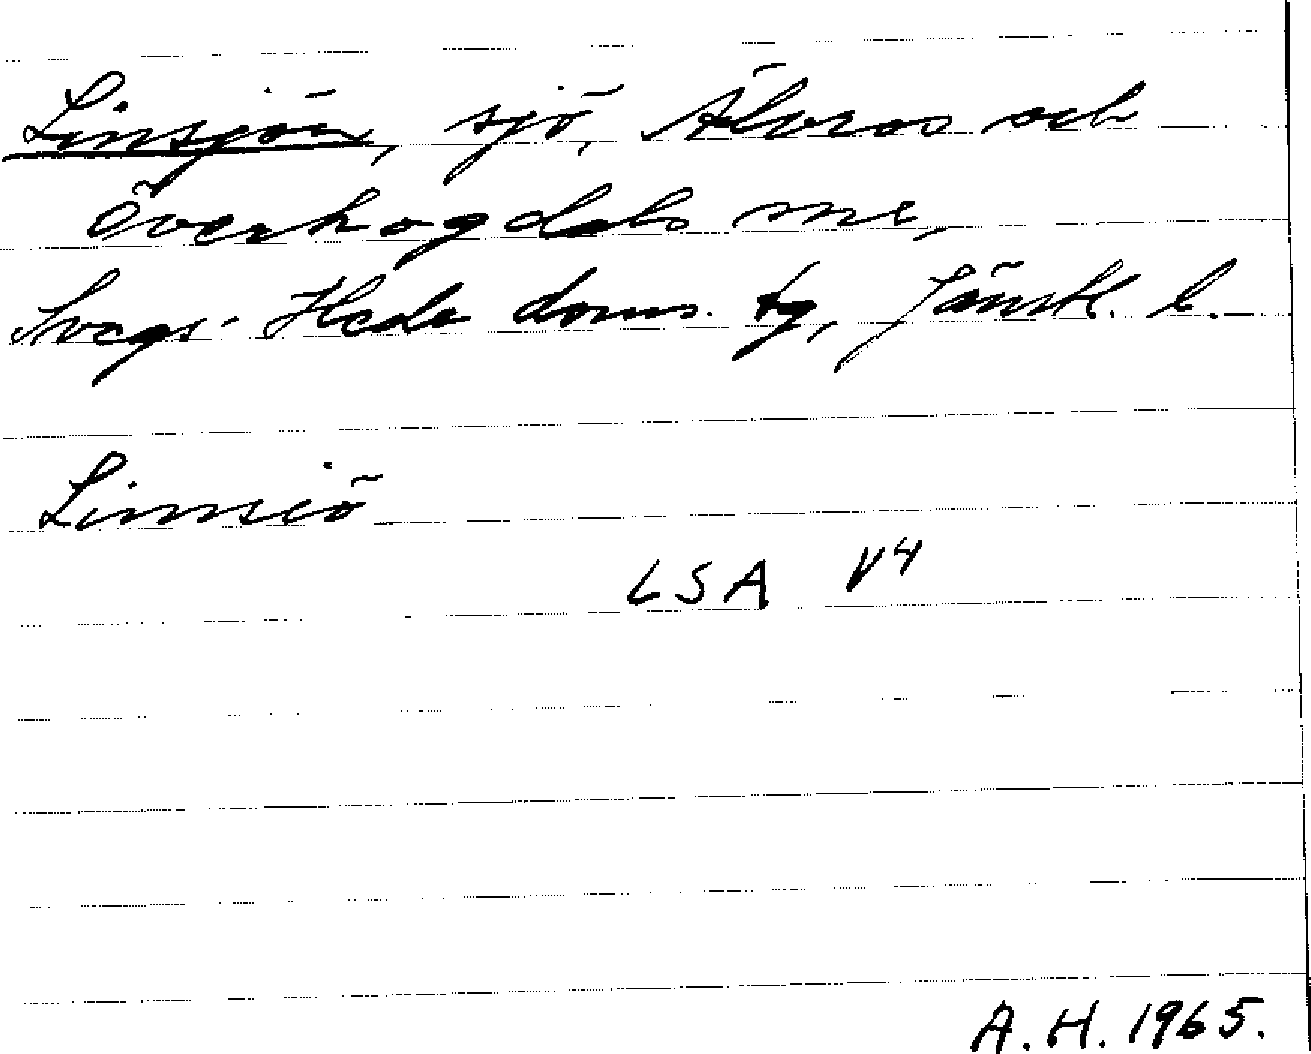 Linsjön, sjö, Älvros och
Överhogdals snr,
Svegs-Hede doms. tg, Jämtl. l.
Linnsiö
LSA V4
A.H. 1965.